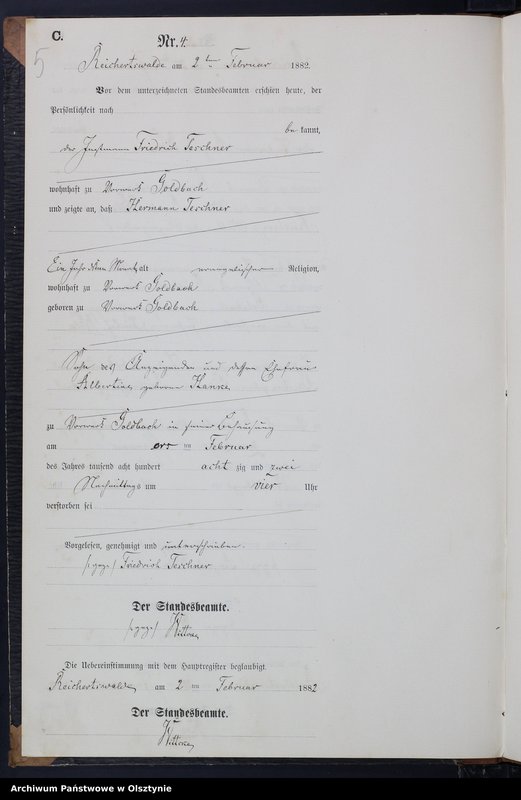 C.
Nr. 4.
5
Reichertswalde am 2ten Februar 1882.
Vor dem unterzeichneten Standesbeamten erschien heute, der
Persönlichkeit nach
be kannt,
der Instmann Friedrich Teschner
wohnhaft zu Vorwerk Goldbach
und zeigte an, daß Hermann Teschner
Ein Jahr Monat alt evangelischer Religion,
wohnhaft zu Vorwerk Goldbach
geboren zu Vorwerk Goldbach
Sohn des Anzeigenden und dessen Ehefrau
Albertine geborene
zu Vorwerk Goldbach in seiner Behausung
am ers ten Februar
des Jahres tausend acht hundert acht zig und zwei
Nachmittags um vier Uhr
verstorben sei
Vorgelesen, genehmigt und unterschrieben.
/:gez:/ Friedrich Teschner
Der Standesbeamte.
/:gez:/
Die Uebereinstimmung mit dem Hauptregister beglaubigt
Reichertswalde am 2 ten Februar 1882
Der Standesbeamte.
Archiwum Państwowe w Olsztynie